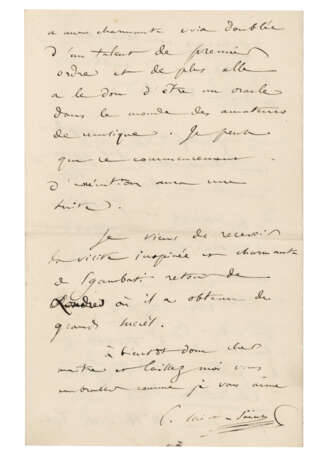 a une charmante voix doublée
d'un talent de premier
ordre et de plus elle
a le don d'être un oracle
dans le monde des amateurs
de musique. Je pense
que ce commencement
d'exécution aura une
suite.
Je viens de recevoir
la visite inopinée et charmante
de Sgambati retour de
Londres où il a obtenu de
grands succès.
à bientôt donc cher
maître et laissez moi vous
embrasser comme je vous aime
C. Saint-Saëns